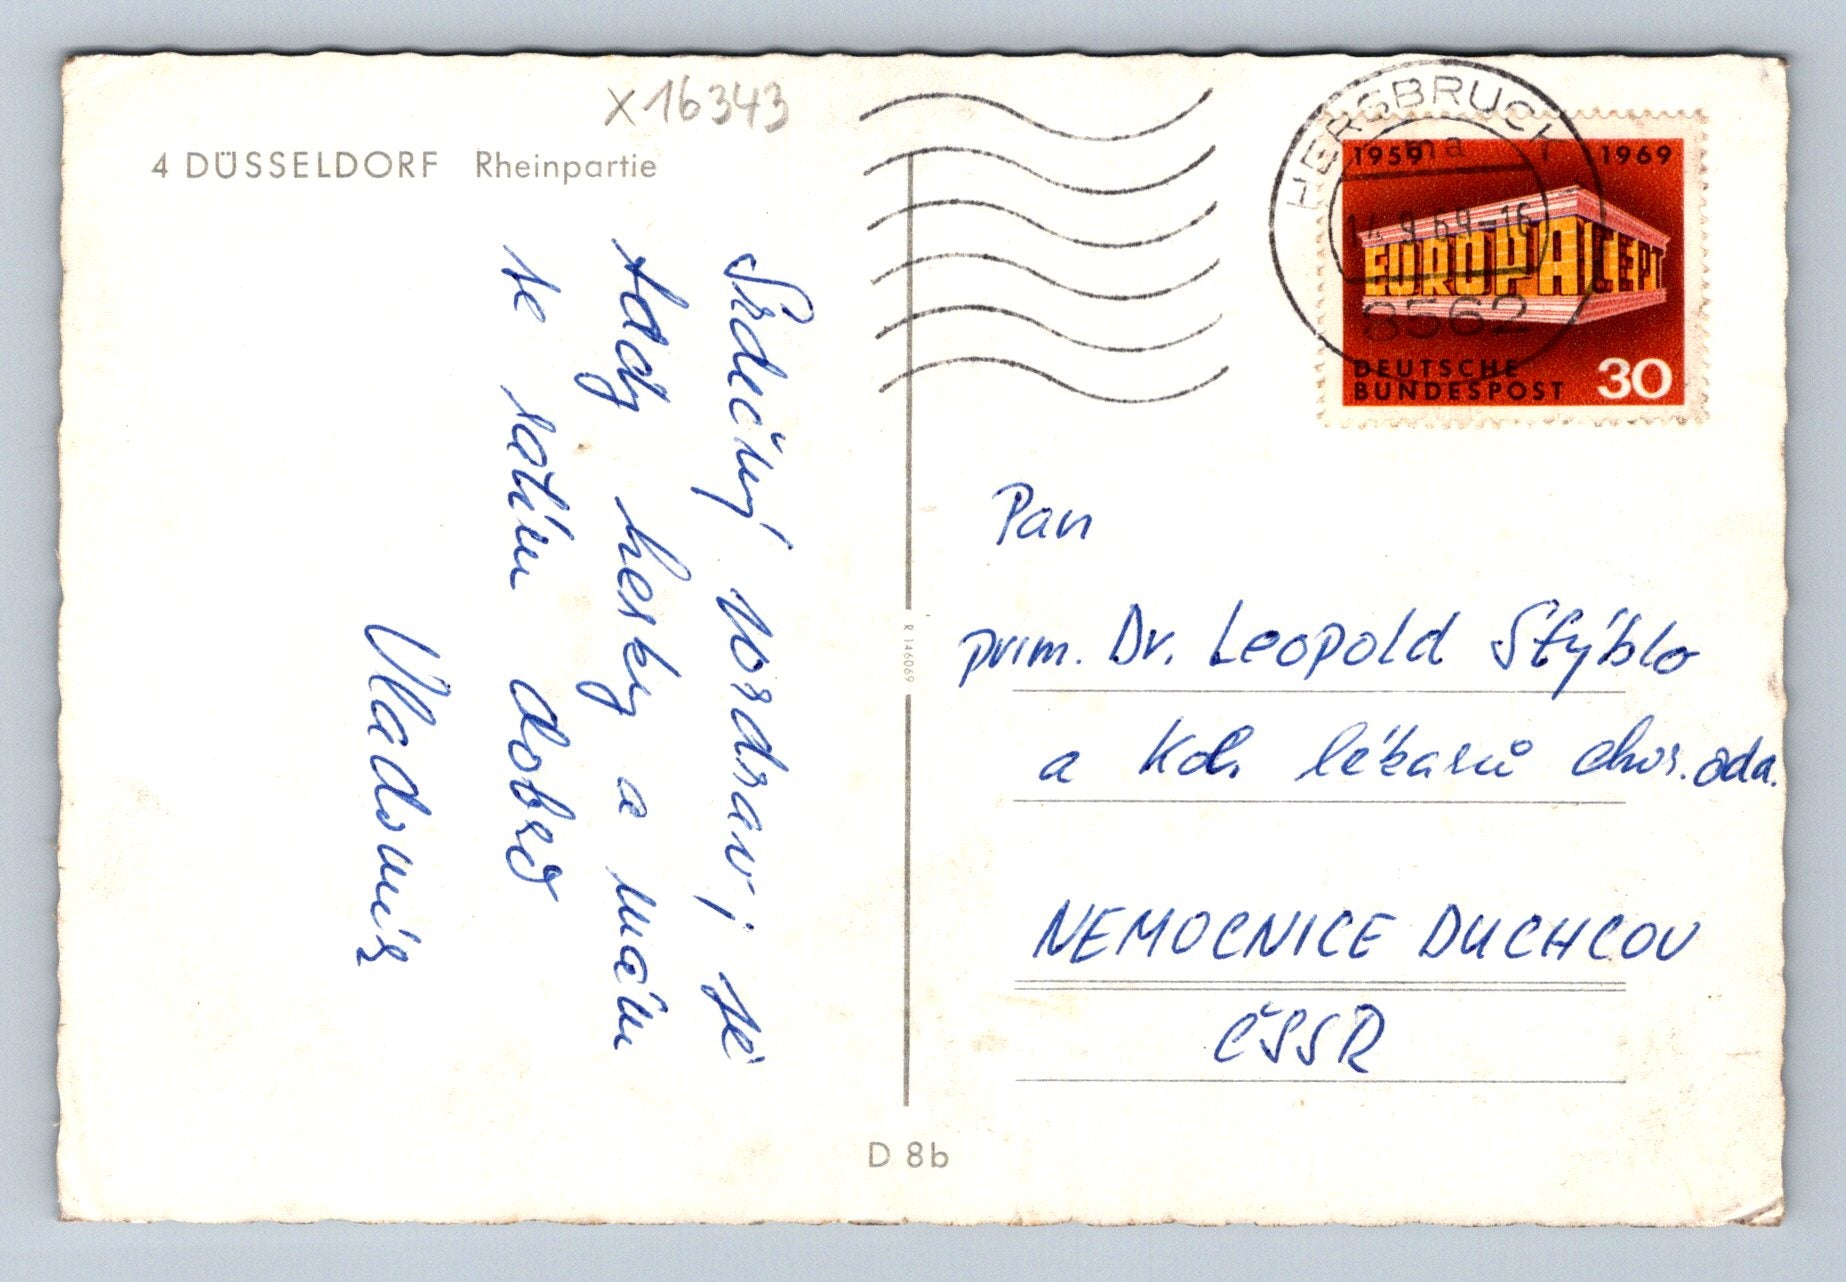 X16343
4 DÜSSELDORF Rheinpartie
Srdečný pozdrav; je
tady hezky a mám
se zatím dobře
Vladimír
R 146069
D 8b
HERSBRUCK 1
ma
14.9.69-16
8562
1959 1969
EUROPA CEPT
DEUTSCHE
BUNDESPOST 30
Pan
prim. Dr. Leopold Stýblo
a kol. lékařů chir. odd.
NEMOCNICE DUCHCOV
ČSSR